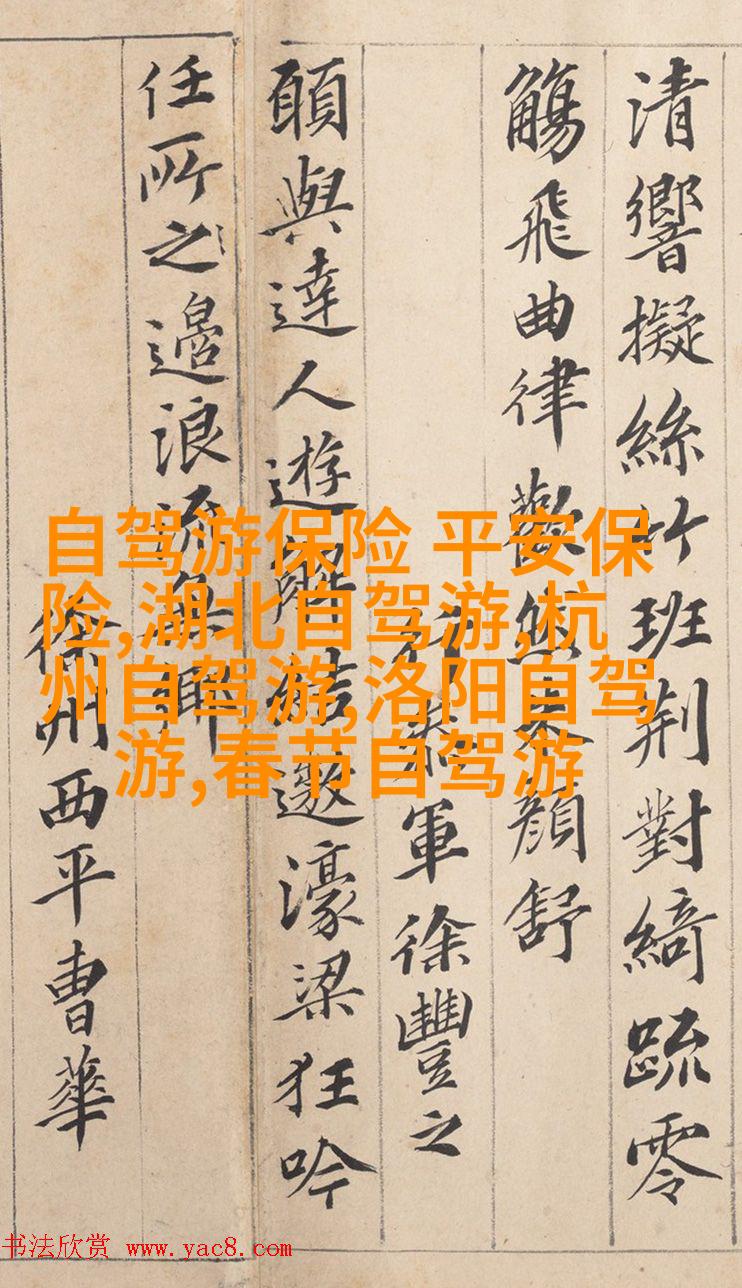 清響擬絲竹班荆對綺䟽零
觴飛曲律歡然朱顔舒
行叅軍徐豐之
願與達人遊解結遨濠梁狂吟
任所之邉浪流無鄉
徐州西平曹華
自驾游保险 平安保
险,湖北自驾游,杭
州自驾游,洛阳自驾
游,春节自驾游
书法欣赏 www.yac8.com